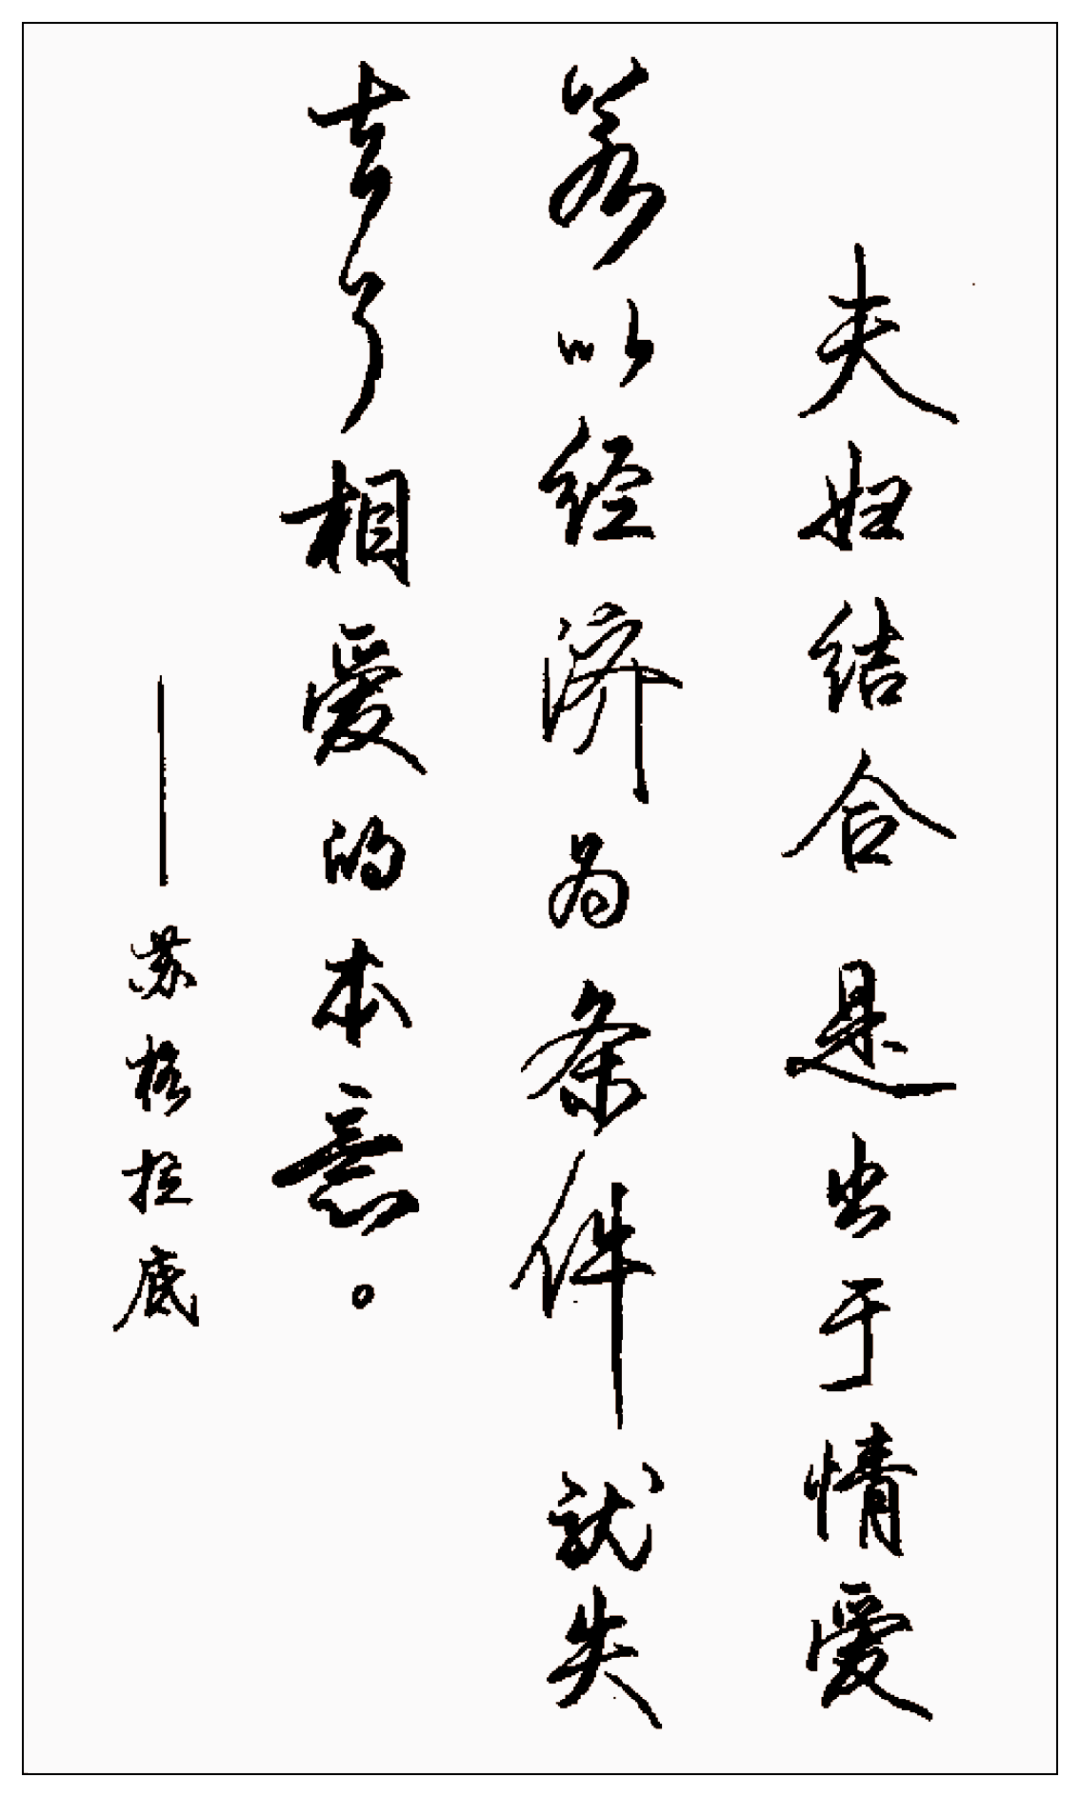 夫妇结合是出于情爱
若以经济为条件就失
去了相爱的本意。
——苏格拉底